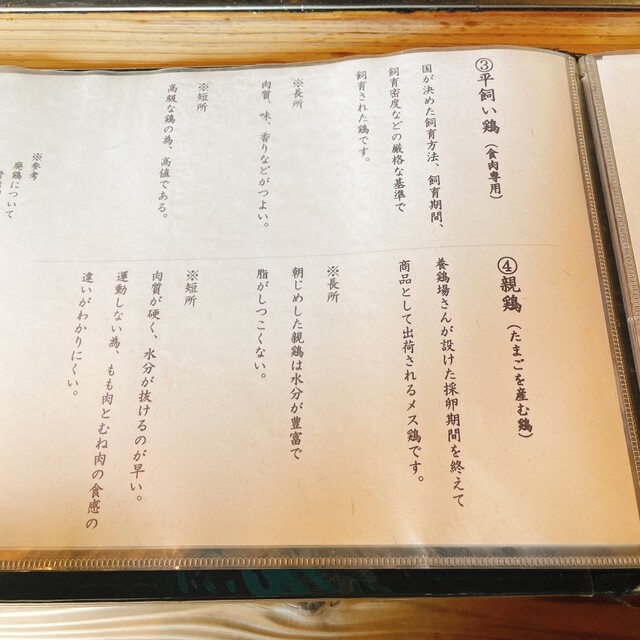 ③平飼い鶏（食肉専用）
国が決めた飼育方法、飼育期間、
飼育密度などの厳格な基準で
飼育された鶏です。
※長所
肉質、味、香りなどがつよい。
※短所
高級な鶏の為、高値である。
※参考
廃鶏について
④親鶏（たまごを産む鶏）
養鶏場さんが設けた採卵期間を終えて
商品として出荷されるメス鶏です。
※長所
朝じめした親鶏は水分が豊富で
脂がしつこくない。
※短所
肉質が硬く、水分が抜けるのが早い。
運動しない為、もも肉とむね肉の食感の
違いがわかりにくい。